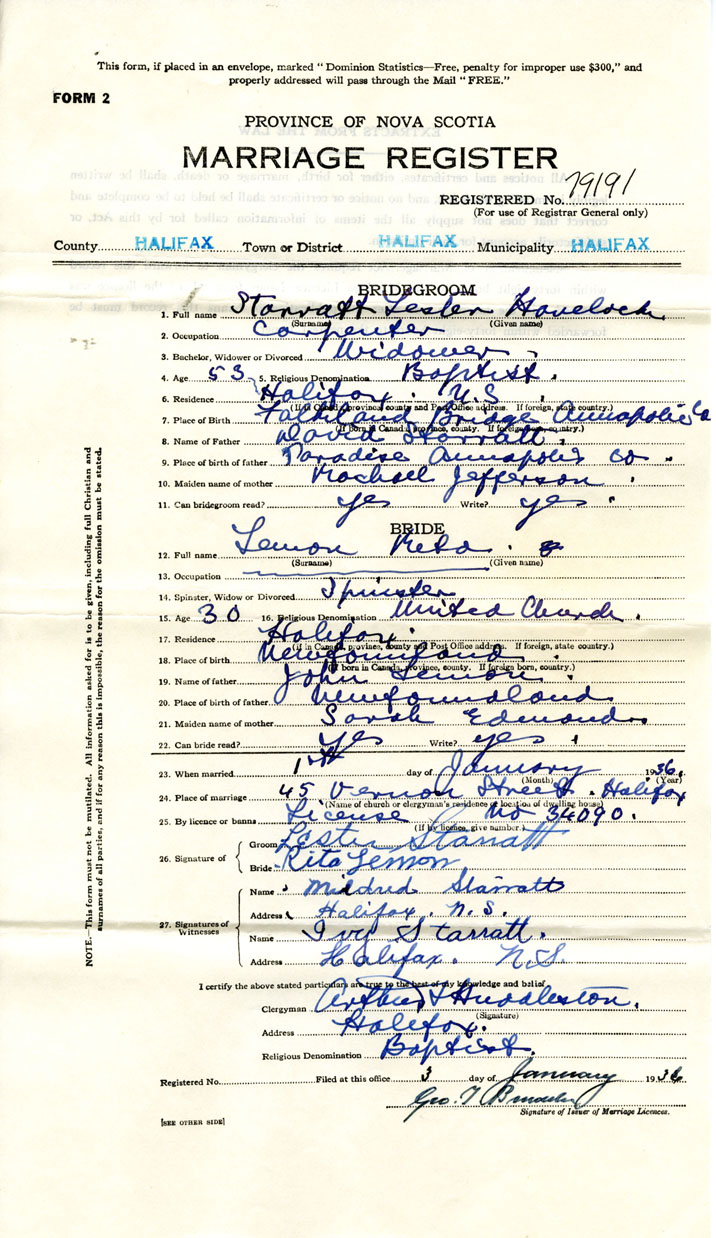 This form, if placed in an envelope, marked “Dominion Statistics—Free, penalty for improper use $300,” and
properly addressed will pass through the Mail “FREE.”
FORM 2
PROVINCE OF NOVA SCOTIA
MARRIAGE REGISTER
REGISTERED No. 79191
(For use of Registrar General only)
County HALIFAX Town or District HALIFAX Municipality HALIFAX
BRIDEGROOM
1. Full name Starratt Lester Havelock
(Surname) (Given name)
2. Occupation Carpenter
3. Bachelor, Widower or Divorced Widower
4. Age 53 5. Religious Denomination Baptist.
6. Residence Halifax. N.S.
(If in Canada, province, county and Post Office address. If foreign, state country.)
7. Place of Birth Falkland Bridge Annapolis Co
(If born in Canada, province, county. If foreign born, country.)
8. Name of Father David Starratt.
9. Place of birth of father Paradise Annapolis Co.
10. Maiden name of mother Rachael Jefferson
11. Can bridegroom read? yes Write? yes
BRIDE
12. Full name Lemon Reta.
(Surname) (Given name)
13. Occupation
14. Spinster, Widow or Divorced Spinster
15. Age 30 16. Religious Denomination United Church.
17. Residence Halifax.
(If in Canada, province, county and Post Office address. If foreign, state country.)
18. Place of birth Newfoundland
(If born in Canada, province, county. If foreign born, country.)
19. Name of father John Lemon.
20. Place of birth of father Newfoundland
21. Maiden name of mother Sarah Edmonds.
22. Can bride read? Yes Write? yes
23. When married 1st day of January 1936.
(Month) (Year)
24. Place of marriage 45 Vernon Street. Halifax
(Name of church or clergyman's residence or location of dwelling house)
25. By licence or banns License No 34090.
(If by licence, give number.)
26. Signature of Groom Lester Starratt
Bride Rita Lemon
27. Signatures of Witnesses Name Mildred Starratt
Address Halifax. N.S.
Name Ivy Starratt.
Address Halifax. N.S.
I certify the above stated particulars are true to the best of my knowledge and belief
Clergyman Arthur Huddleston.
(Signature)
Address Halifax.
Religious Denomination Baptist.
Registered No. Filed at this office 3 day of January 1936
Geo. T
Signature of Issuer of Marriage Licences.
[SEE OTHER SIDE]
NOTE.—This form must not be mutilated. All information asked for is to be given, including full Christian and
surnames of all parties, and if for any reason this is impossible, the reason for the omission must be stated.